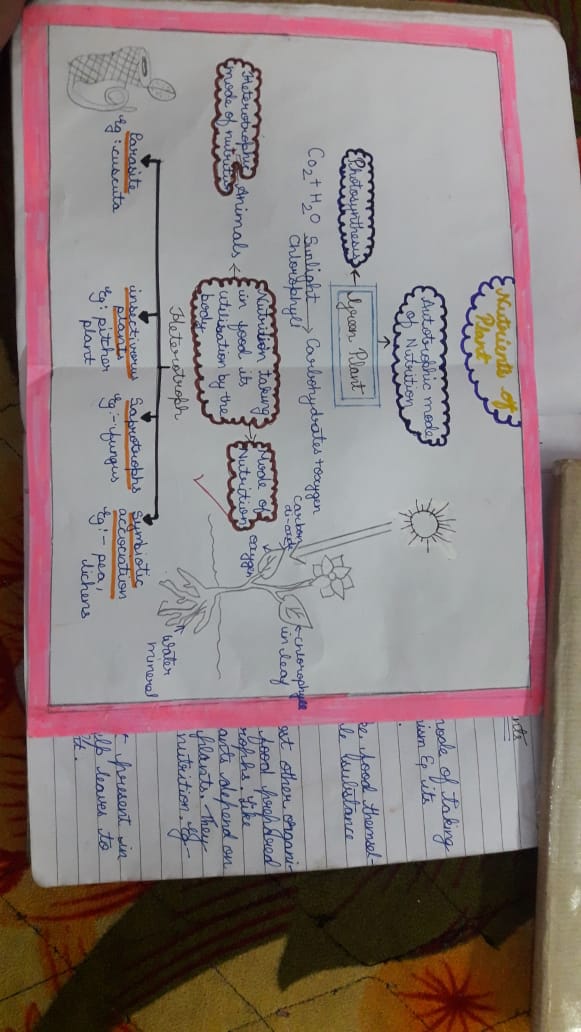 Nutrients of
Plant
Autotrophic mode
of Nutrition
Green Plant
Photosynthesis
Co2 + H2O Sunlight Carbohydrates + oxygen
Chlorophyll
Carbon
di-oxide
←chlorophyll
in leaf
oxygen
water
mineral
Mode of
Nutrition
Nutrition taking
in food its
utilisation by the
body
Animals
Heterotrophic
mode of nutrition
Heterotroph
Parasite
Eg: cuscuta
insectivorus
plants
Eg: pitcher
plant
Saprotrophs
Eg:- fungus
Symbiotic
accociation
Eg:- pea,
lichens
nts
mode of taking
ism & its
ke food themsel-
substance
other organi-
food prepared
rophs. like
depend on
plants. They
nutrition. Eg-
present in
leaves to
it.